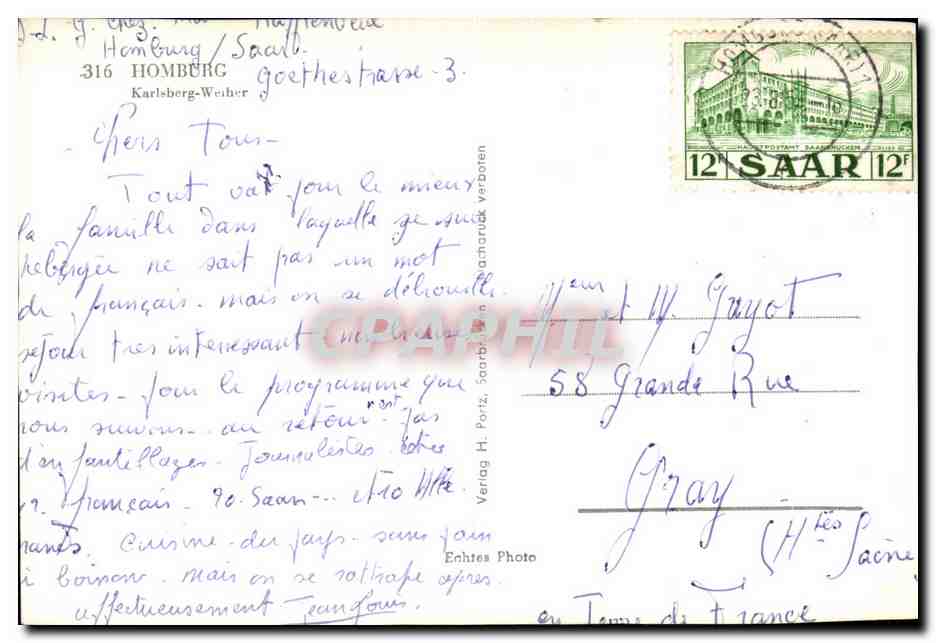 J-L. G. chez. Mr
Homburg / Saar.
316 HOMBURG
Goethestrasse. 3.
Karlsberg-Weiher
Chers Tous-
Tout va pour le mieux
la famille dans laquelle je suis
hébergée ne sait pas un mot
de français. mais on se débrouille.
séjour très interessant. nombreuses
visites. pour le programme que
nous suivons. au retour n'est pas
d'enfantillages. Journalistes
français. 90. Saar
Cuisine. du pays. sans pain
ni boisson. mais on se rattrape après.
affectueusement Jean Louis.
Verlag H. Portz, Saarbrücken Nachdruck verboten
Echtes Photo
HOMBURG (SAAR) 1
HAUPTPOSTAMT SAARBRÜCKEN
12F SAAR 12F
Meur et M. Gayot
58 Grande Rue
Gray
(Htes Saône
en Terre de France
CPAPHIL